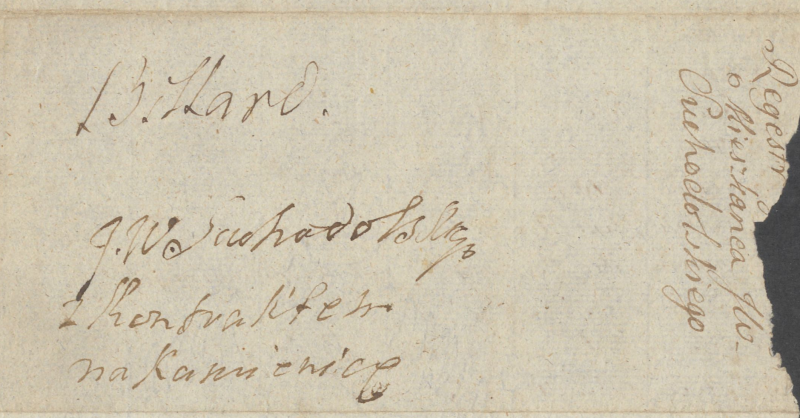 Billard.
J. W. Suchodolskego
z Kontraktem
na Kamienicę
Regestr
o Mieszkanca JW.
Suchodolskiego